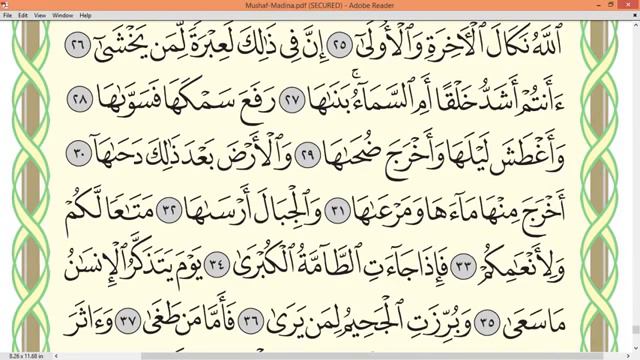 Mushaf-Madina.pdf (SECURED) - Adobe Reader
File Edit View Window Help
ٱللَّهُ نَكَالَ ٱلْءَاخِرَةِ وَٱلْأُولَىٰٓ ٢٥ إِنَّ فِى ذَٰلِكَ لَعِبْرَةً لِّمَن يَخْشَىٰٓ ٢٦
ءَأَنتُمْ أَشَدُّ خَلْقًا أَمِ ٱلسَّمَآءُ ۚ بَنَىٰهَا ٢٧ رَفَعَ سَمْكَهَا فَسَوَّىٰهَا ٢٨
وَأَغْطَشَ لَيْلَهَا وَأَخْرَجَ ضُحَىٰهَا ٢٩ وَٱلْأَرْضَ بَعْدَ ذَٰلِكَ دَحَىٰهَآ ٣٠
أَخْرَجَ مِنْهَا مَآءَهَا وَمَرْعَىٰهَا ٣١ وَٱلْجِبَالَ أَرْسَىٰهَا ٣٢ مَتَٰعًا لَّكُمْ
وَلِأَنْعَٰمِكُمْ ٣٣ فَإِذَا جَآءَتِ ٱلطَّآمَّةُ ٱلْكُبْرَىٰ ٣٤ يَوْمَ يَتَذَكَّرُ ٱلْإِنسَٰنُ
مَا سَعَىٰ ٣٥ وَبُرِّزَتِ ٱلْجَحِيمُ لِمَن يَرَىٰ ٣٦ فَأَمَّا مَن طَغَىٰ ٣٧ وَءَاثَرَ
8.26 x 11.68 in